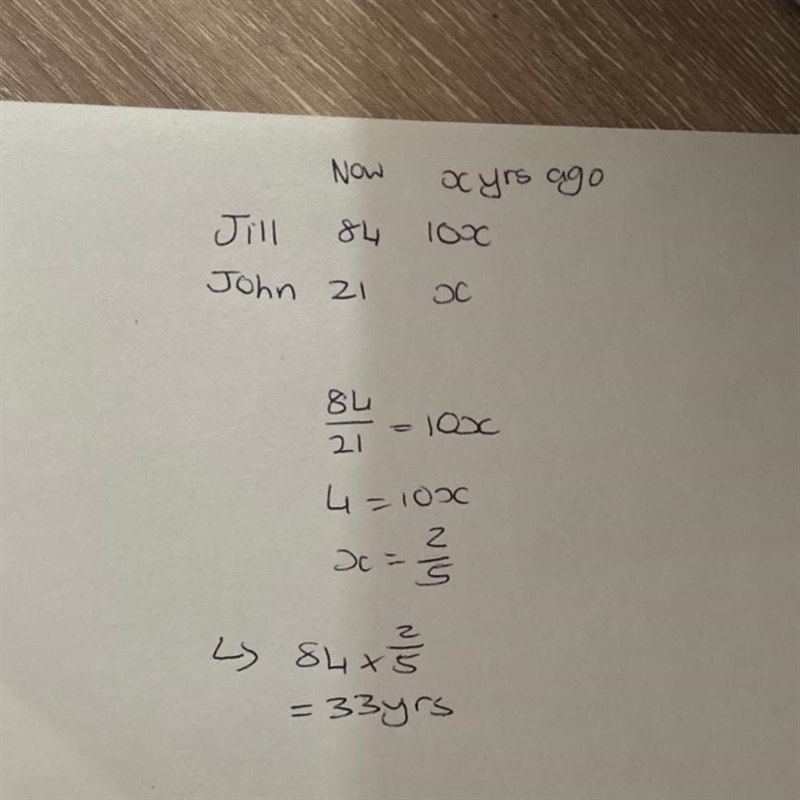 Now x yrs ago
Jill 84 10x
John 21 x
84/21 = 10x
4 = 10x
x = 2/5
↳ 84 × 2/5
= 33yrs